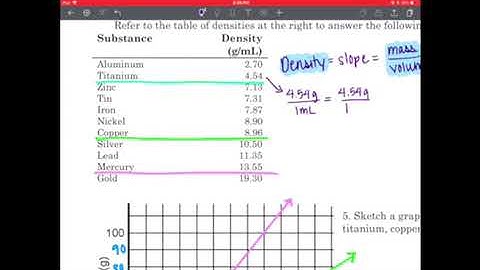 Refer to the table of densities at the right to answer the followin
Substance Density
(g/mL)
Aluminum 2.70
Titanium 4.54
Zinc 7.13
Tin 7.31
Iron 7.87
Nickel 8.90
Copper 8.96
Silver 10.50
Lead 11.35
Mercury 13.55
Gold 19.30
Density = slope = mass
volum
4.54g = 4.54g
1mL 1
5. Sketch a grap
titanium, copper
100
90
80
(g)